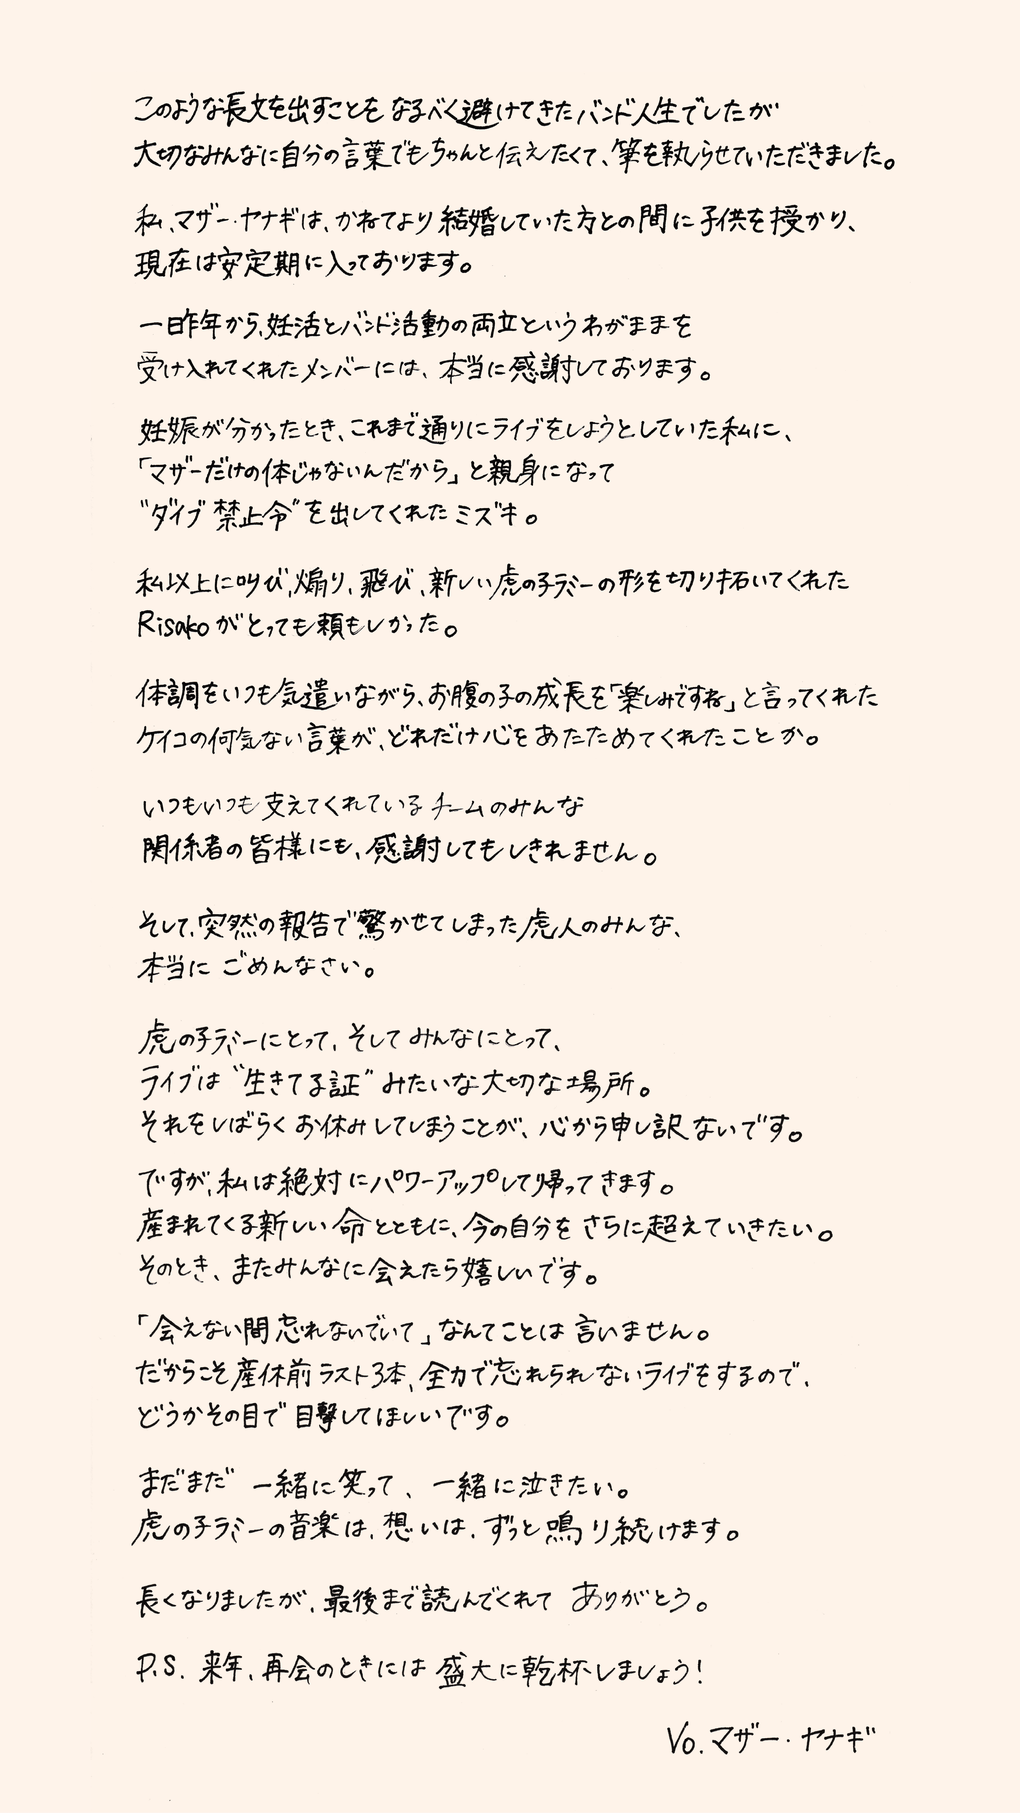 このような長文を出すことを なるべく避けてきたバンド人生でしたが
大切なみんなに自分の言葉でもちゃんと伝えたくて、筆を執らせていただきました。
私、マザー・ヤナギは、かねてより結婚していた方との間に子供を授かり、
現在は安定期に入っております。
一昨年から、妊活とバンド活動の両立というわがままを
受け入れてくれたメンバーには、本当に感謝しております。
妊娠が分かったとき、これまで通りにライブをしようとしていた私に、
「マザーだけの体じゃないんだから」と親身になって
“ダイブ禁止令”を出してくれたミズキ。
私以上に叫び、煽り、飛び、新しい虎の子ラミーの形を切り拓いてくれた
Risakoがとっても頼もしかった。
体調をいつも気遣いながら、お腹の子の成長を「楽しみですね」と言ってくれた
ケイコの何気ない言葉が、どれだけ心をあたためてくれたことか。
いつもいつも支えてくれているチームのみんな
関係者の皆様にも、感謝してもしきれません。
そして、突然の報告で驚かせてしまった虎人のみんな、
本当に ごめんなさい。
虎の子ラミーにとって、そしてみんなにとって、
ライブは“生きてる証”みたいな大切な場所。
それをしばらくお休みしてしまうことが、心から申し訳ないです。
ですが、私は絶対にパワーアップして帰ってきます。
産まれてくる新しい命とともに、今の自分をさらに超えていきたい。
そのとき、またみんなに会えたら嬉しいです。
「会えない間忘れないでいて」なんてことは言いません。
だからこそ産休前ラスト3本、全力で忘れられないライブをするので、
どうかその目で目撃してほしいです。
まだまだ 一緒に笑って、一緒に泣きたい。
虎の子ラミーの音楽は、想いは、ずっと鳴り続けます。
長くなりましたが、最後まで読んでくれて ありがとう。
P.S. 来年、再会のときには盛大に乾杯しましょう!
Vo.マザー・ヤナギ